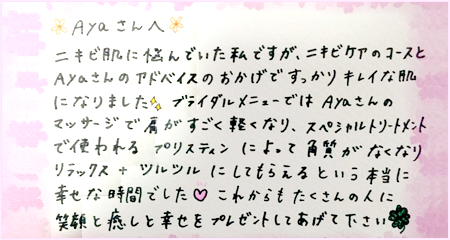 Ayaさんへ
ニキビ肌に悩んでいた私ですが、ニキビケアのコースと
Ayaさんのアドバイスのおかげですっかりキレイな肌
になりました✨ ブライダルメニューではAyaさんの
マッサージで肩がすごく軽くなり、スペシャルトリートメント
で使われる プリスティン によって角質がなくなり
リラックス + ツルツル にしてもらえるという本当に
幸せな時間でした♡ これからもたくさんの人に
笑顔と癒しと幸せをプレゼントしてあげて下さい🍀